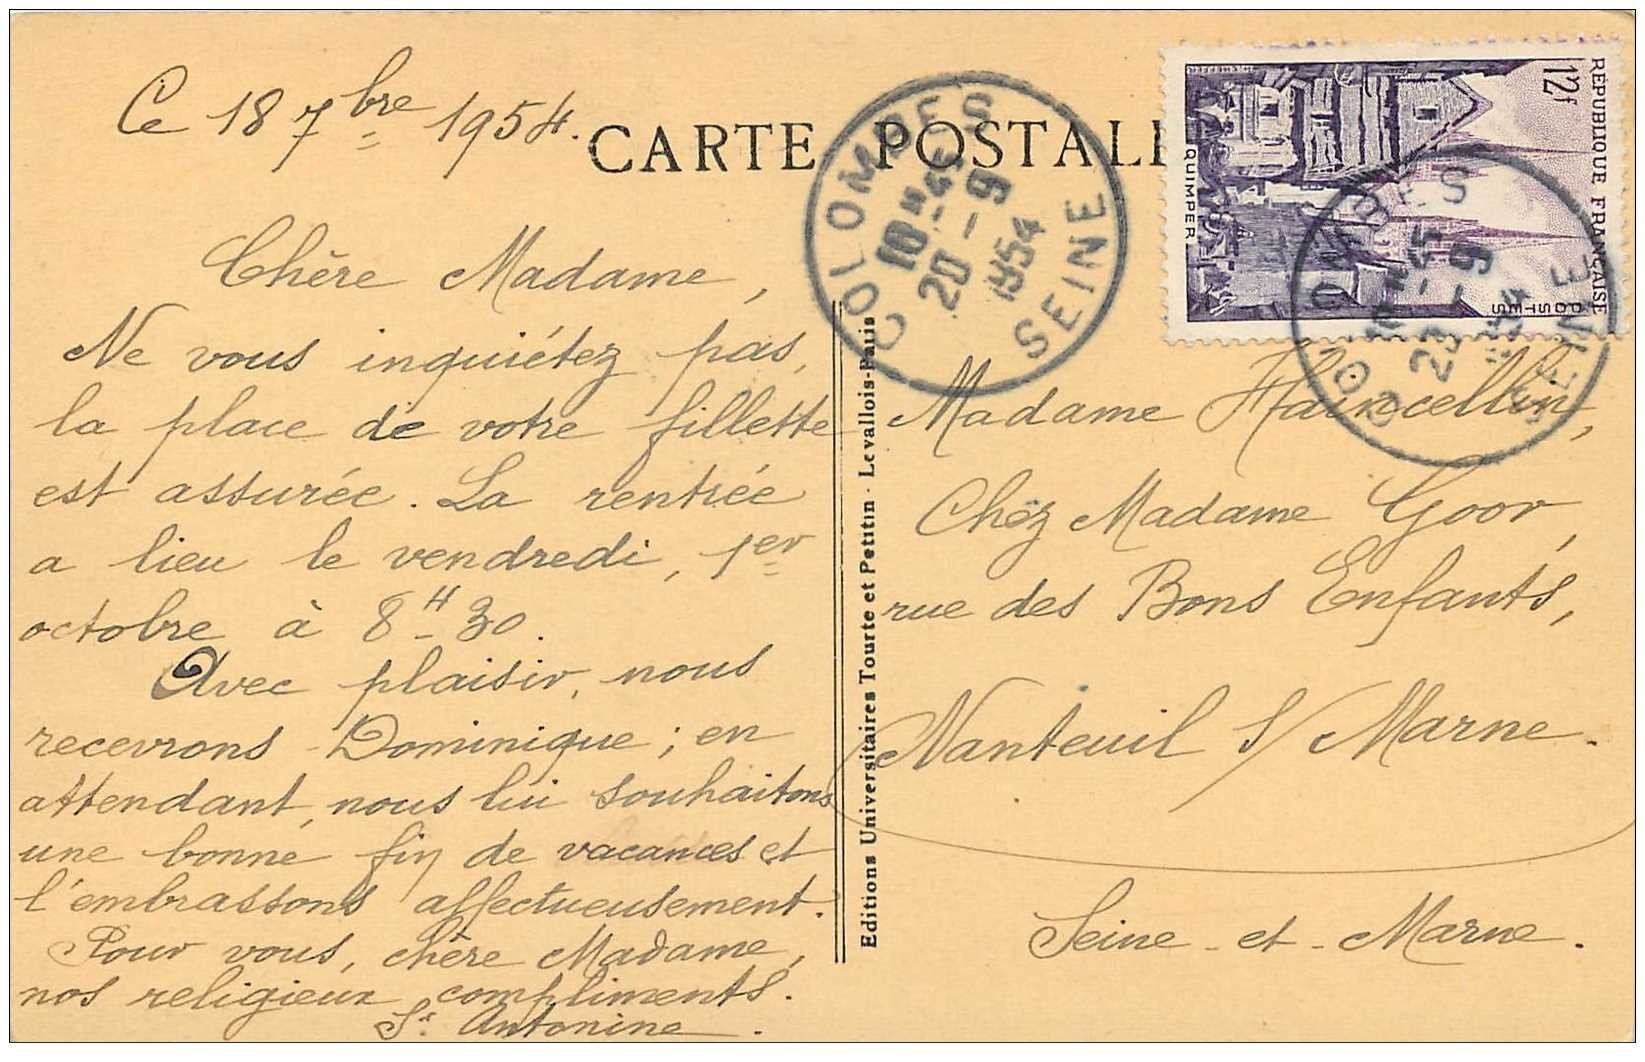 Ce 18 7bre 1954.
CARTE POSTALE
Chère Madame,
Ne vous inquiétez pas,
la place de votre fillette
est assurée. La rentrée
a lieu le vendredi, 1er
octobre à 8H30.
Avec plaisir, nous
recevrons Dominique ; en
attendant, nous lui souhaitons
une bonne fin de vacances et
l'embrassons affectueusement.
Pour vous, chère Madame,
nos religieux compliments.
Sr Antonine.
Editions Universitaires Tourte et Petitin - Levallois-Paris
COLOMBES
10H45
20-9
1954
SEINE
REPUBLIQUE FRANÇAISE
12f
POSTES
QUIMPER
COLOMBES
10H45
20-9
1954
SEINE
Madame Haincellin,
Chez Madame Goor,
rue des Bons Enfants,
Nanteuil s/ Marne.
Seine-et-Marne.